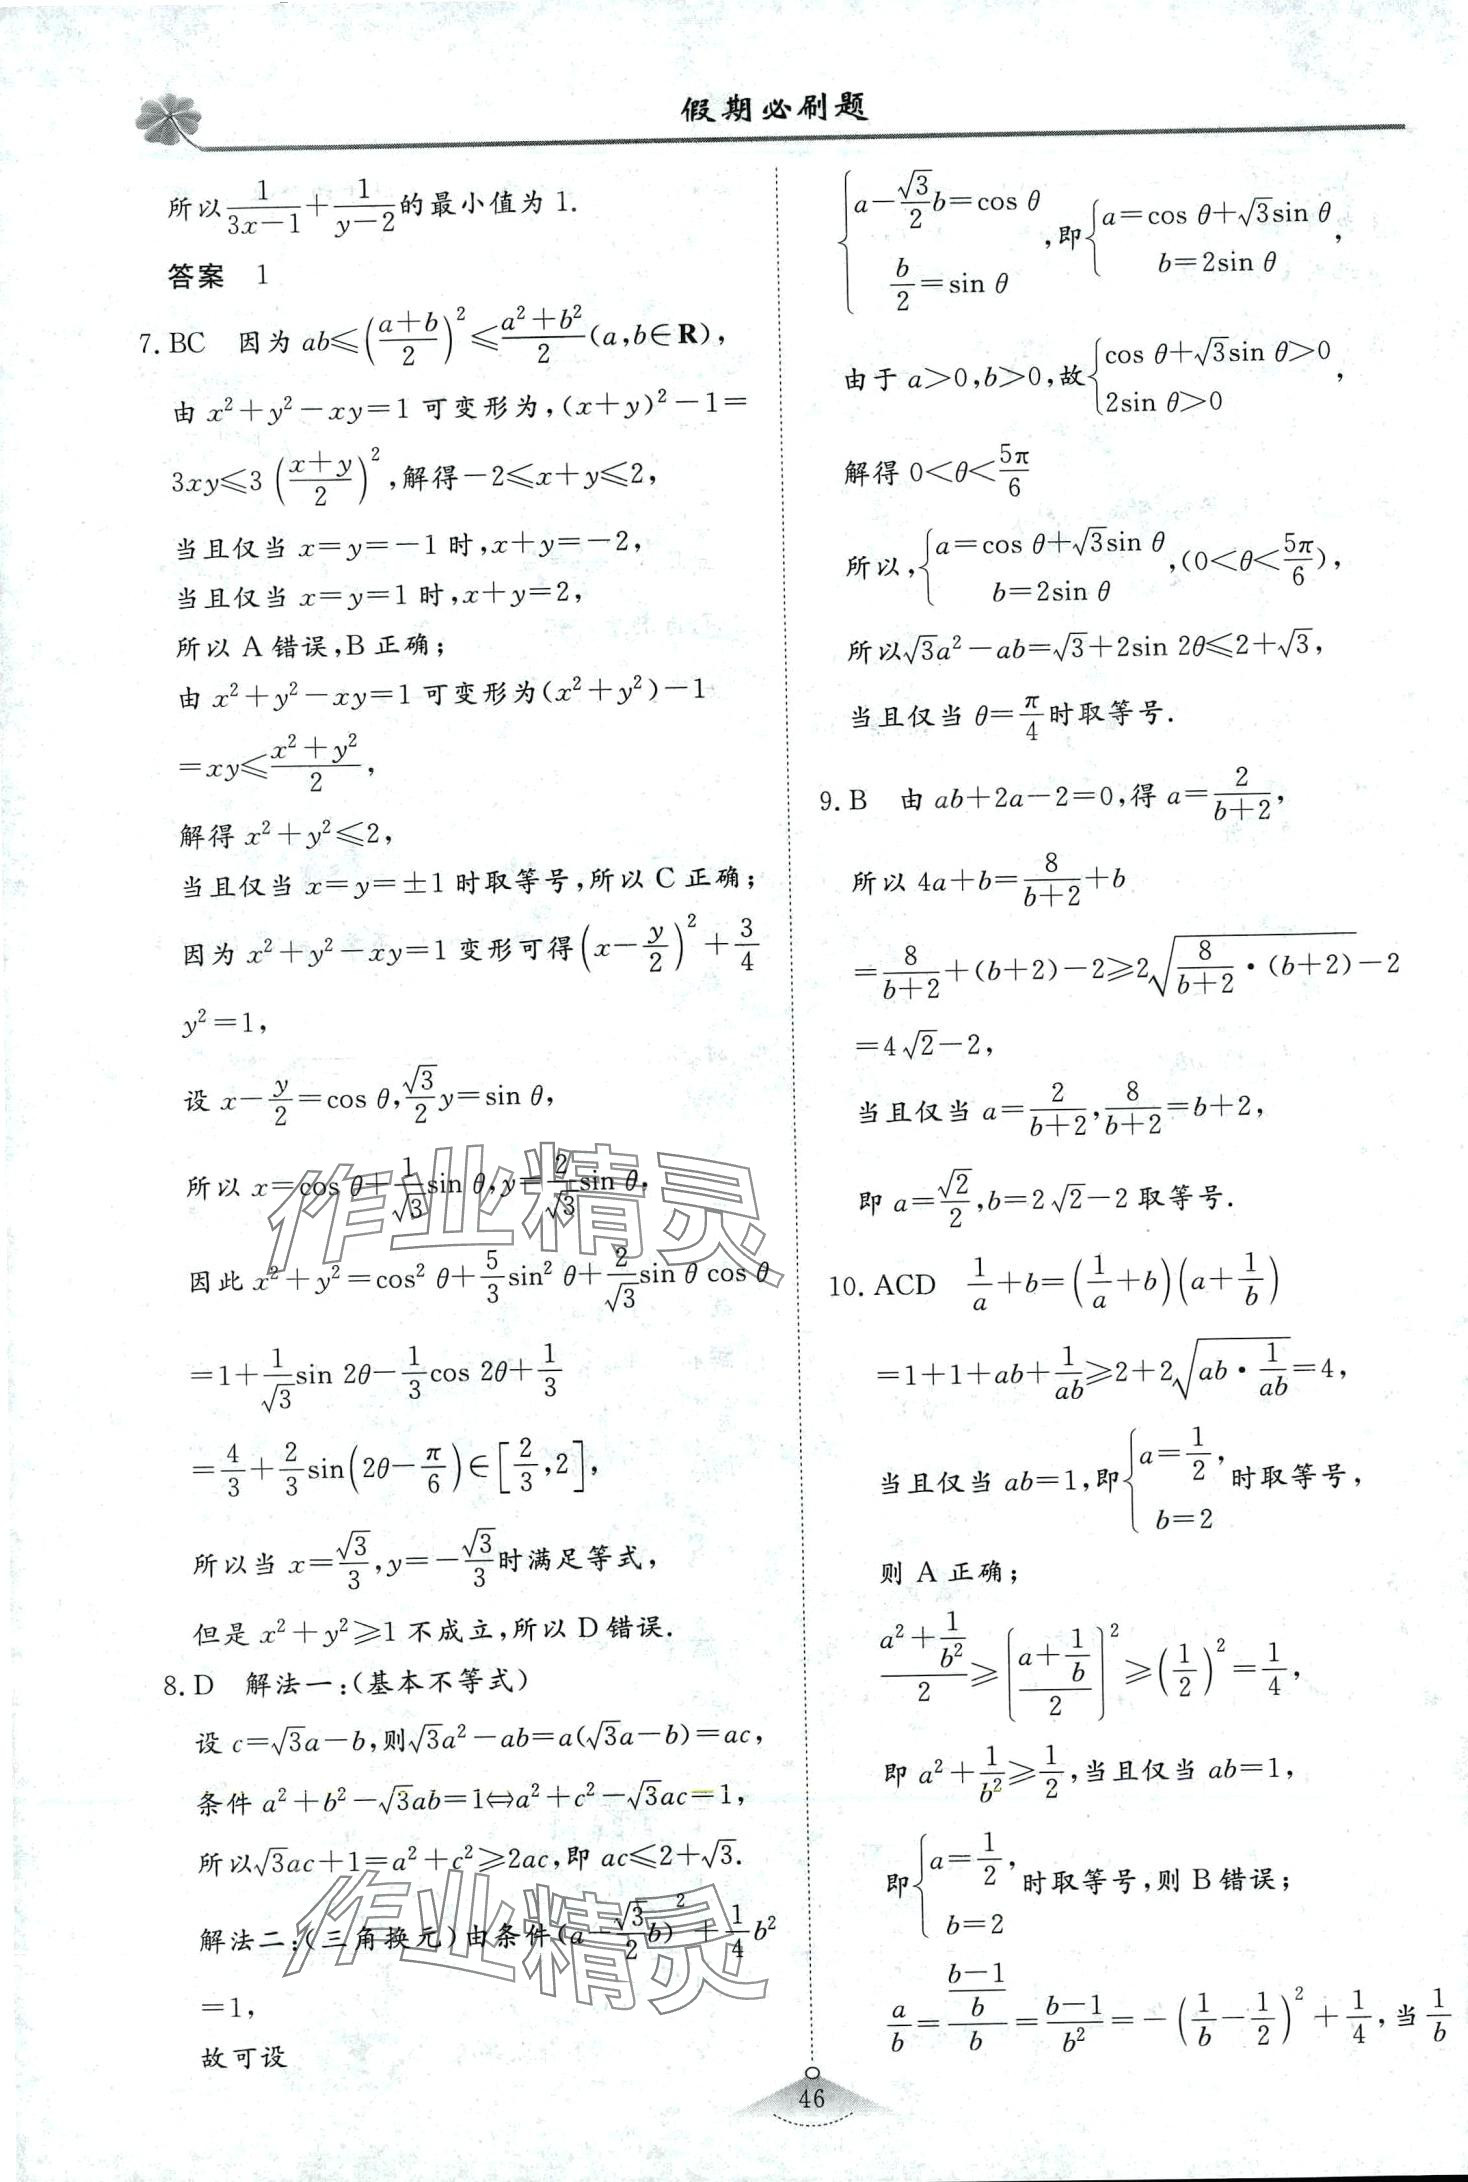 假期必刷题
所以 1/(3x−1)+1/(y−2) 的最小值为 1.
答案 1
7. BC 因为 ab≤((a+b)/2)²≤(a²+b²)/2(a,b∈R),
由 x²+y²−xy=1 可变形为,(x+y)²−1=
3xy≤3((x+y)/2)²,解得−2≤x+y≤2,
当且仅当 x=y=−1 时,x+y=−2,
当且仅当 x=y=1 时,x+y=2,
所以 A 错误,B 正确;
由 x²+y²−xy=1 可变形为(x²+y²)−1
=xy≤(x²+y²)/2,
解得 x²+y²≤2,
当且仅当 x=y=±1 时取等号,所以 C 正确;
因为 x²+y²−xy=1 变形可得(x−y/2)²+3/4
y²=1,
设 x−y/2=cos θ,(√3/2)y=sin θ,
所以 x=cos θ+(1/√3)sin θ,y=(2/√3)sin θ,
因此 x²+y²=cos² θ+(5/3)sin² θ+(2/√3)sin θ cos θ
=1+(1/√3)sin 2θ−(1/3)cos 2θ+1/3
=4/3+(2/3)sin(2θ−π/6)∈[2/3,2],
所以当 x=√3/3,y=−√3/3时满足等式,
但是 x²+y²≥1 不成立,所以 D 错误.
8. D 解法一:(基本不等式)
设 c=√3a−b,则√3a²−ab=a(√3a−b)=ac,
条件 a²+b²−√3ab=1⇔a²+c²−√3ac=1,
所以√3ac+1=a²+c²≥2ac,即 ac≤2+√3.
解法二:(三角换元)由条件(a−(√3/2)b)²+(1/4)b²
=1,
故可设
{a−(√3/2)b=cos θ
b/2=sin θ ,即{a=cos θ+√3sin θ
b=2sin θ ,
由于 a>0,b>0,故{cos θ+√3sin θ>0
2sin θ>0 ,
解得 0<θ<5π/6
所以,{a=cos θ+√3sin θ
b=2sin θ ,(0<θ<5π/6),
所以√3a²−ab=√3+2sin 2θ≤2+√3,
当且仅当 θ=π/4时取等号.
9. B 由 ab+2a−2=0,得 a=2/(b+2),
所以 4a+b=8/(b+2)+b
=8/(b+2)+(b+2)−2≥2√(8/(b+2)·(b+2))−2
=4√2−2,
当且仅当 a=2/(b+2),8/(b+2)=b+2,
即 a=√2/2,b=2√2−2 取等号.
10. ACD 1/a+b=(1/a+b)(a+1/b)
=1+1+ab+1/(ab)≥2+2√(ab·1/(ab))=4,
当且仅当 ab=1,即{a=1/2,
b=2 时取等号,
则 A 正确;
(a²+1/b²)/2≥[(a+1/b)/2]²≥(1/2)²=1/4,
即 a²+1/b²≥1/2,当且仅当 ab=1,
即{a=1/2,
b=2 时取等号,则 B 错误;
a/b=((b−1)/b)/b=(b−1)/b²=−(1/b−1/2)²+1/4,当1/b
作业精灵
作业精灵
46